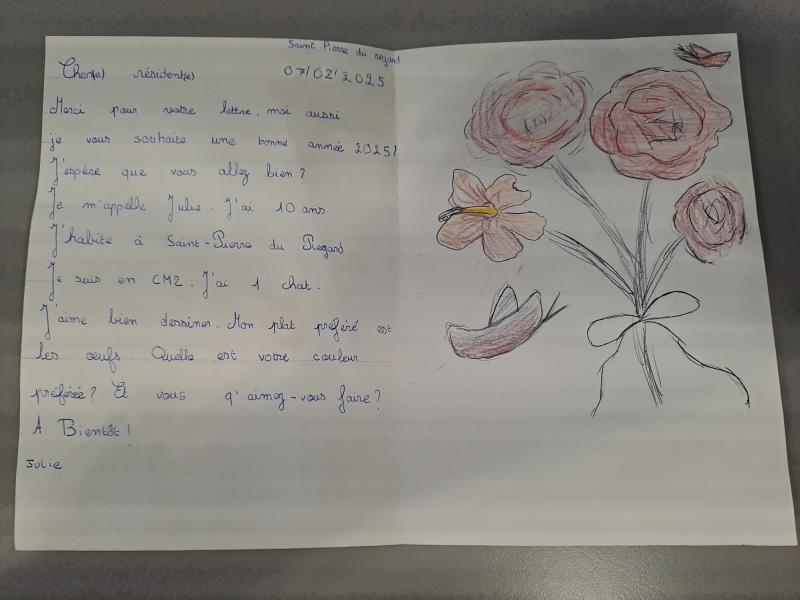 Saint Pierre du regard
Cher(e) résident(e) 07/02/2025
Merci pour votre lettre, moi aussi
je vous souhaite une bonne année 2025!
J'espère que vous allez bien ?
Je m'appelle Julie. J'ai 10 ans.
J'habite à Saint-Pierre du Regard.
Je suis en CM2. J'ai 1 chat.
J'aime bien dessiner. Mon plat préféré est
les œufs. Quelle est votre couleur
préférée ? Et vous q'aimez-vous faire ?
A Bientôt !
Julie